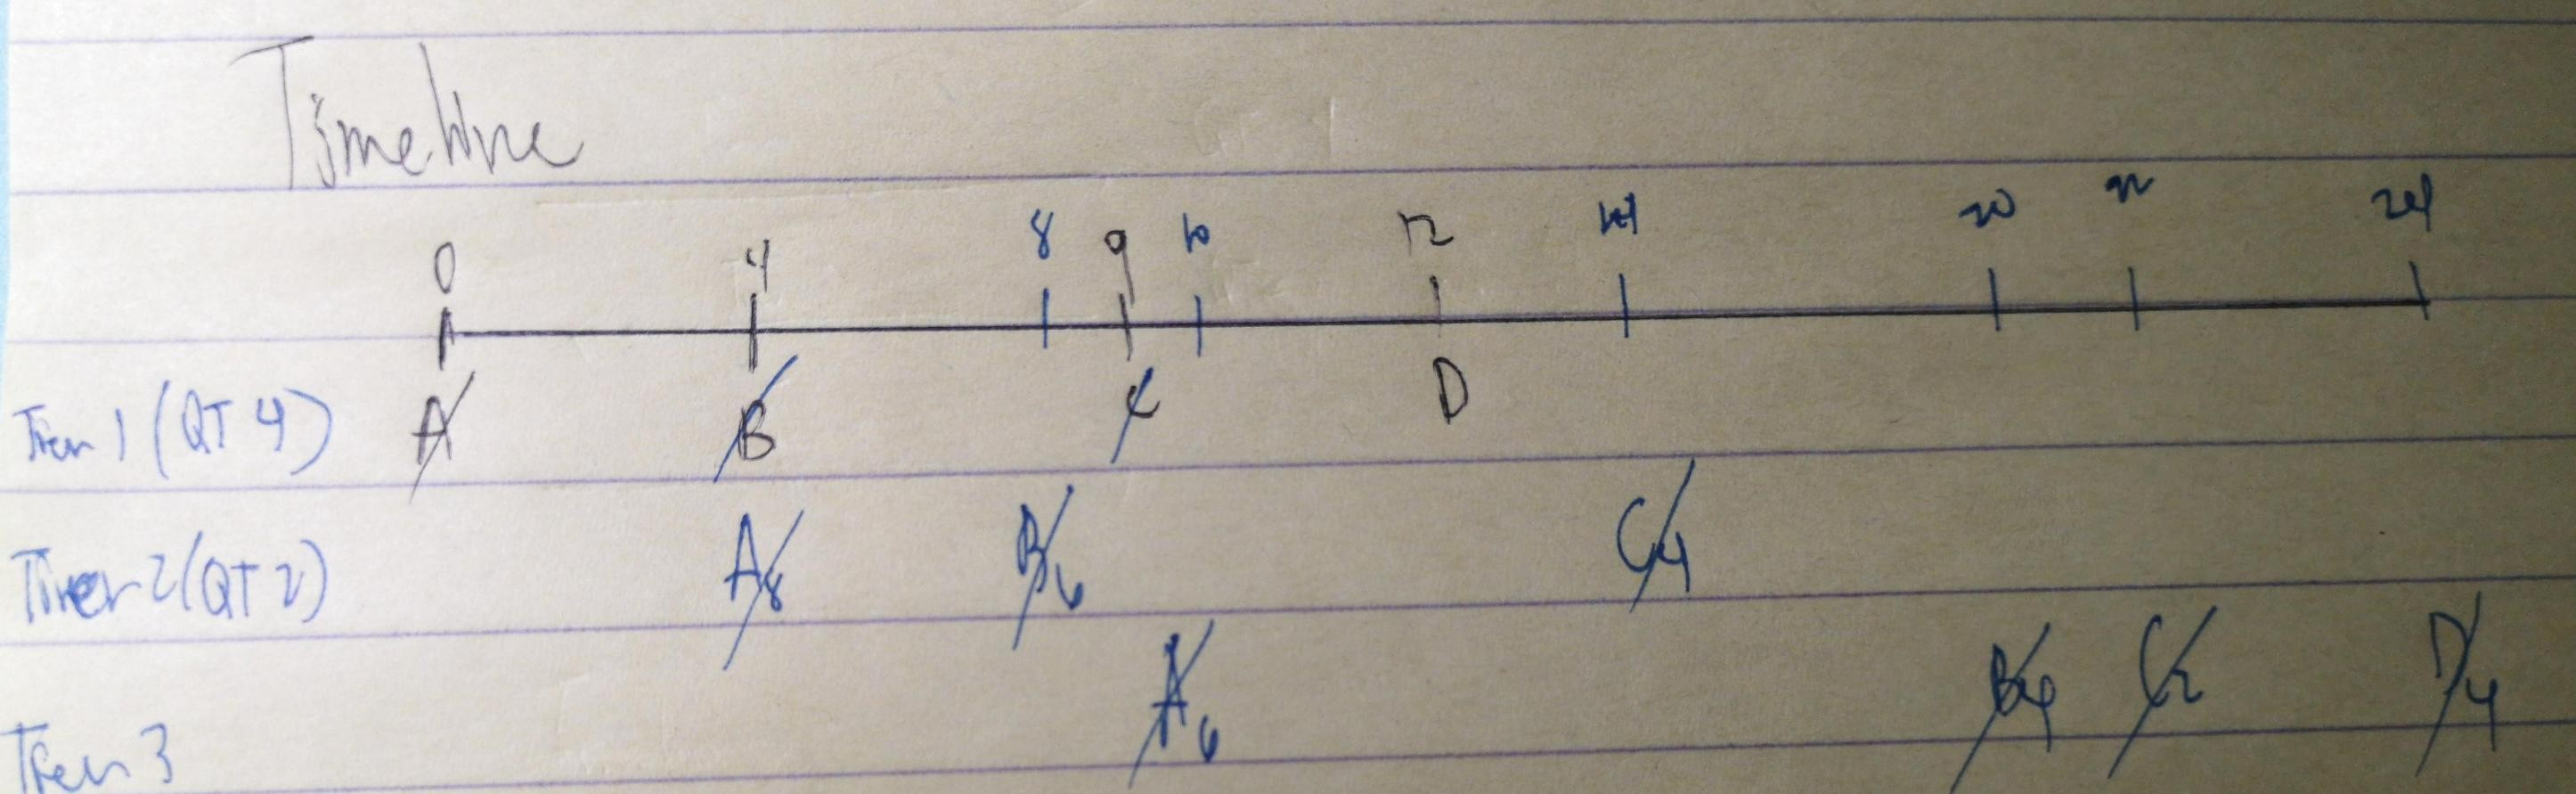 Timeline
0 4 8 9 10 12 14 20 22 24
Tier 1 (QT 4) A B C D
Tier 2 (QT 2) A8 B6 C4
A6 B4 C2 D4
Tier 3